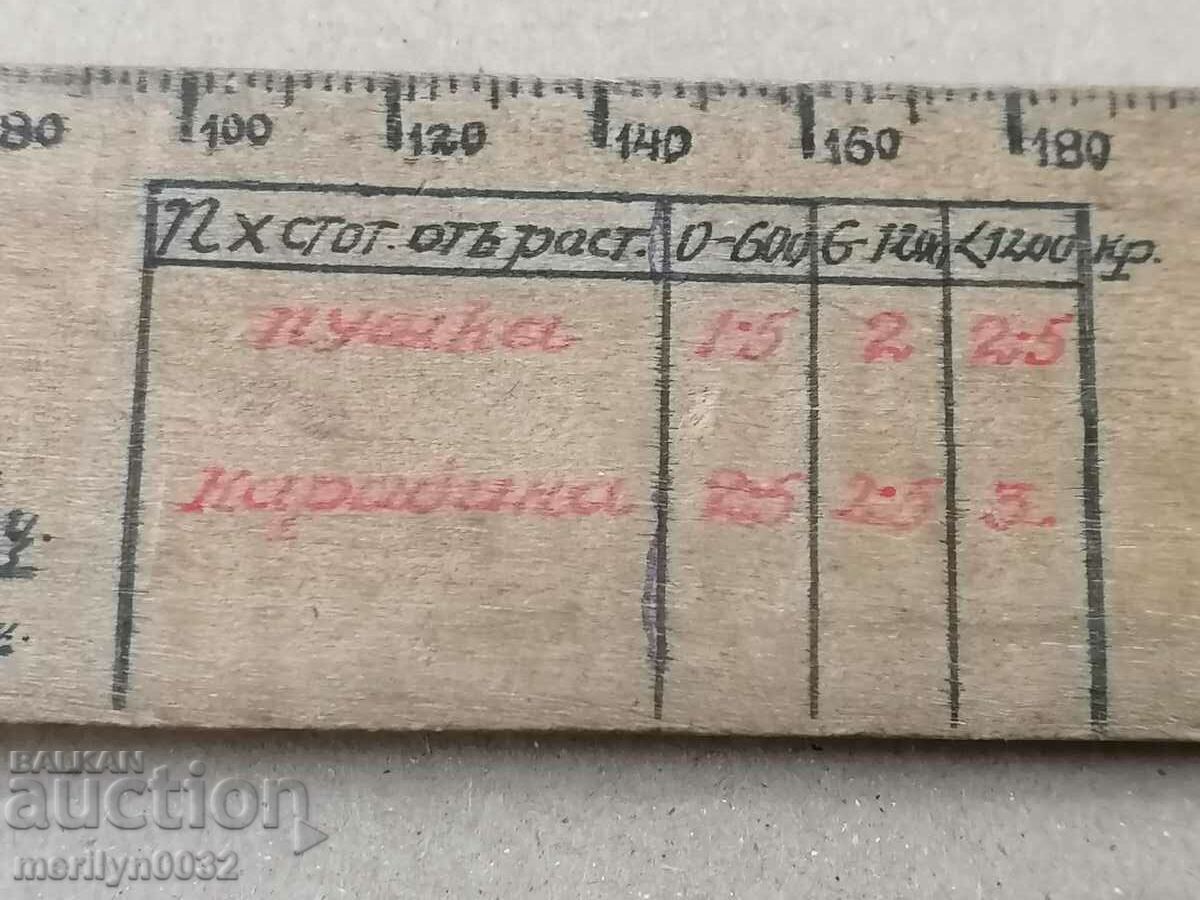 80 100 120 140 160 180
П х стот. отъ раст. 0-600 6-1200 <1200 кр.
пушка 1:5 2 2:5
карабина 2:5 2:5 3
BALKAN
auction
merilyn0032